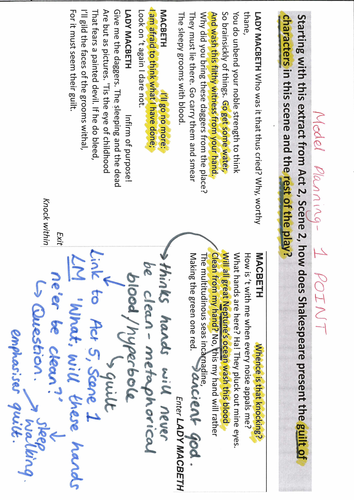 Model Planning - 1 POINT
Starting with this extract from Act 2, Scene 2, how does Shakespeare present the guilt of
characters in this scene and the rest of the play?
LADY MACBETH Who was it that thus cried? Why, worthy
thane,
You do unbend your noble strength to think
So brainsickly of things. Go get some water,
And wash this filthy witness from your hand.
Why did you bring these daggers from the place?
They must lie there. Go carry them and smear
The sleepy grooms with blood.
MACBETH
I'll go no more:
I am afraid to think what I have done;
Look on 't again I dare not.
LADY MACBETH
Infirm of purpose!
Give me the daggers. The sleeping and the dead
Are but as pictures. 'Tis the eye of childhood
That fears a painted devil. If he do bleed,
I'll gild the faces of the grooms withal,
For it must seem their guilt.
Exit
Knock within
MACBETH
Whence is that knocking?
How is 't with me when every noise appals me?
What hands are here? Ha! They pluck out mine eyes.
Will all great Neptune's ocean wash this blood
Clean from my hand? No, this my hand will rather
The multitudinous seas incarnadine,
Making the green one red.
Enter LADY MACBETH
ancient god.
thinks hands will never
be clean - metaphorical
blood/hyperbole
guilt
Link to Act 5, Scene 1
LM 'What, will these hands
ne'er be clean?'
Question
emphasise guilt.
sleep
walking.